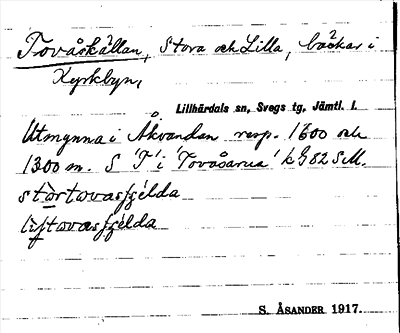 Tovåskällan, Stora och Lilla, bäckar i
Kyrkbyn,
Lillhärdals sn, Svegs tg, Jämtl. l.
Utmynna i Åkvandan resp. 1600 och
1300 m. S 'T' i 'Tovåsarna' k G 82 S.M.
stòrtovasʃʃélda
S. ÅSANDER 1917.